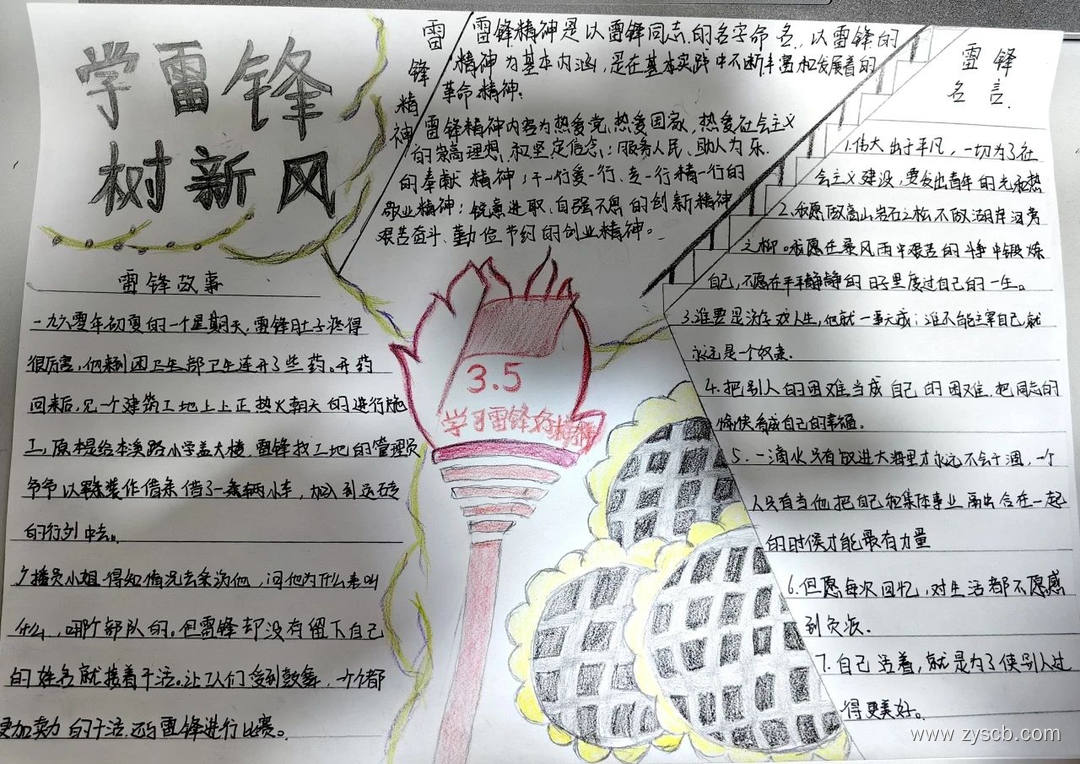 学雷锋
树新风
雷锋精神
雷锋精神是以雷锋同志的名字命名,以雷锋的
精神为基本内涵,是在基本实践中不断丰富和发展着的
革命精神;
雷锋精神内容为热爱党,热爱国家,热爱社会主义
的崇高理想和坚定信念;服务人民、助人为乐
的奉献精神;干一行爱一行、专一行精一行的
敬业精神;锐意进取、自强不息的创新精神
艰苦奋斗、勤俭节约的创业精神。
雷锋故事
一九六零年初夏的一个星期天,雷锋肚子疼得
很厉害,他来到团卫生部卫生连开了些药。开药
回来后,见一个建筑工地上上正热火朝天的进行施
工,原本是给本溪路小学盖大楼,雷锋找工地的管理员
爷爷以 作借条借了一 辆小车,加入到运砖
的行列中去。
广播员小姐得知情况去采访他,问他为什么来叫
什么,哪个部队的。但雷锋却没有留下自己
的姓名就接着干活。让工人们受到鼓舞,个个都
更加卖力的干活还与雷锋进行比赛。
3.5
学习雷锋好榜样
雷锋
名言.
1.伟大出于平凡,一切为了社
会主义建设,要发出青年的光和热
2.我愿做高山岩石之松不做湖岸河旁
之柳。我愿在暴风雨中艰苦的斗争中锻炼
自己,不愿在平平静静的日子里度过自己的一生。
3.谁要是游戏人生,他就一事无成;谁不能主宰自己,就
永远是一个奴隶.
4.把别人的困难当成自己的困难.把同志的
愉快看成自己的幸福。
5.一滴水只有放进大海里才永远不会干涸,一个
人只有当他把自己和集体事业融合在一起
的时候才能最有力量
6.但愿每次回忆,对生活都不愿感
到负疚.
7.自己活着,就是为了使别人过
得更美好。
www.zyscb.com